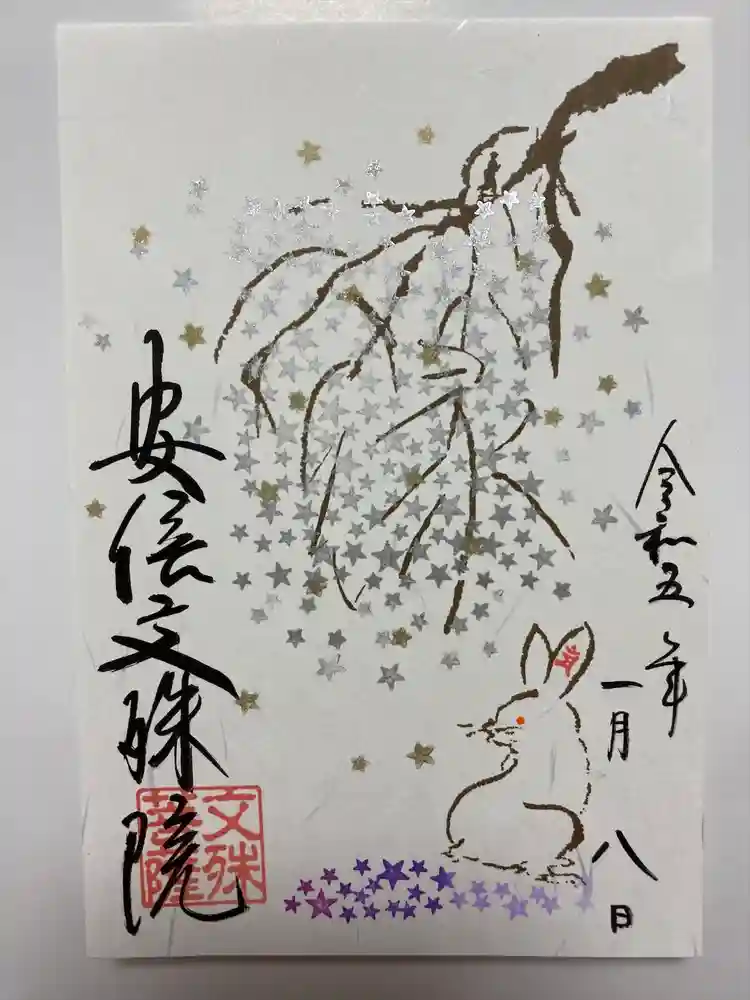 令和五年
一月八日
安倍文殊院
文殊
菩薩